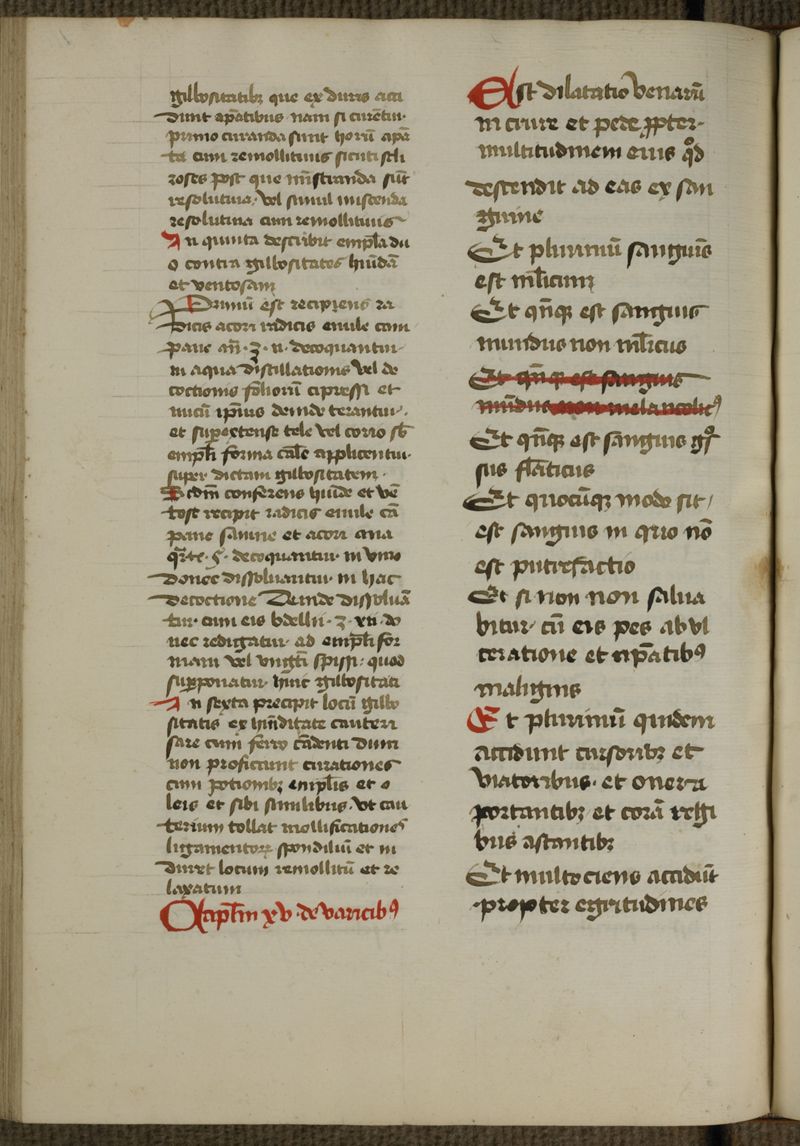 gilbositatibꝫ que ex duris acci
dunt ap̄atibus nam si curētur
primo curanda sunt horū apa
ta cum remollitiuis sicuti
post que mīstranda sūt
resolutiua. vel simul miscenda
resolutiua cum remollitiuis
In quinta describit emplā du
o contra gilbositates hūidā
et ventosam
Primū est recipiens ra
dicis acori radicis enule cam
pane an̄. ʒ. decoquantur
in aqua distillationis vel de
coctionis foliorū cipressi et
nucū ipsius deinde terantur.
et super extense tele vel corio sb̄
emplī forma calē applicentur
super dictam gilbositatem.
Secdm̄ conferens hūide et vē
tose recipit radicis enule cā
pane sanine et acori ana
decoquantur in vino
donec dissoluantur in hac
decoctione Deinde dissoluā
tur cum eis bdellii. ʒ. xii. do
nec redigatur ad emplī for
mam vel vngtī spissi. quod
supponatur huic gilbositati
In sexta precipit locū gilbo
sitatis ex hūiditate cauteri
sare cum ferro cādenti dum
non proficiunt curationes
cum potionibꝫ emplīs et o
leis et sibi similibus. vt cau
terium tollat mollificationes
ligamentorꝫ spondiliū et in
duret locum remollitū et re
laxatum
Capłm xv de varicibꝰ
Est dilatatio venarū
in crure et pede ꝓpter
multitudinem eius qd̄
descendit ad eas ex san
guine
Et plurimū sanguis
est mlīcum
Et qn̄qꝫ est sanguis
mundus non mlīcus
Et qn̄qꝫ est sanguis
mūdus non melancolicꝰ
Et qn̄qꝫ est sanguis gro
sus flāticus
Et quocūqꝫ modo sit
est sanguis in quo nō
est putrefactio
Et si non non salua
bitur cū eis pes ab vl
ceratione et ap̄atibꝰ
malignis
Et plurimū quidem
accidunt cursoribꝫ et
viatoribus. et onera
portantibꝫ et corā regi
bus astantibꝫ
Et multociens accidūt
propter egritudines